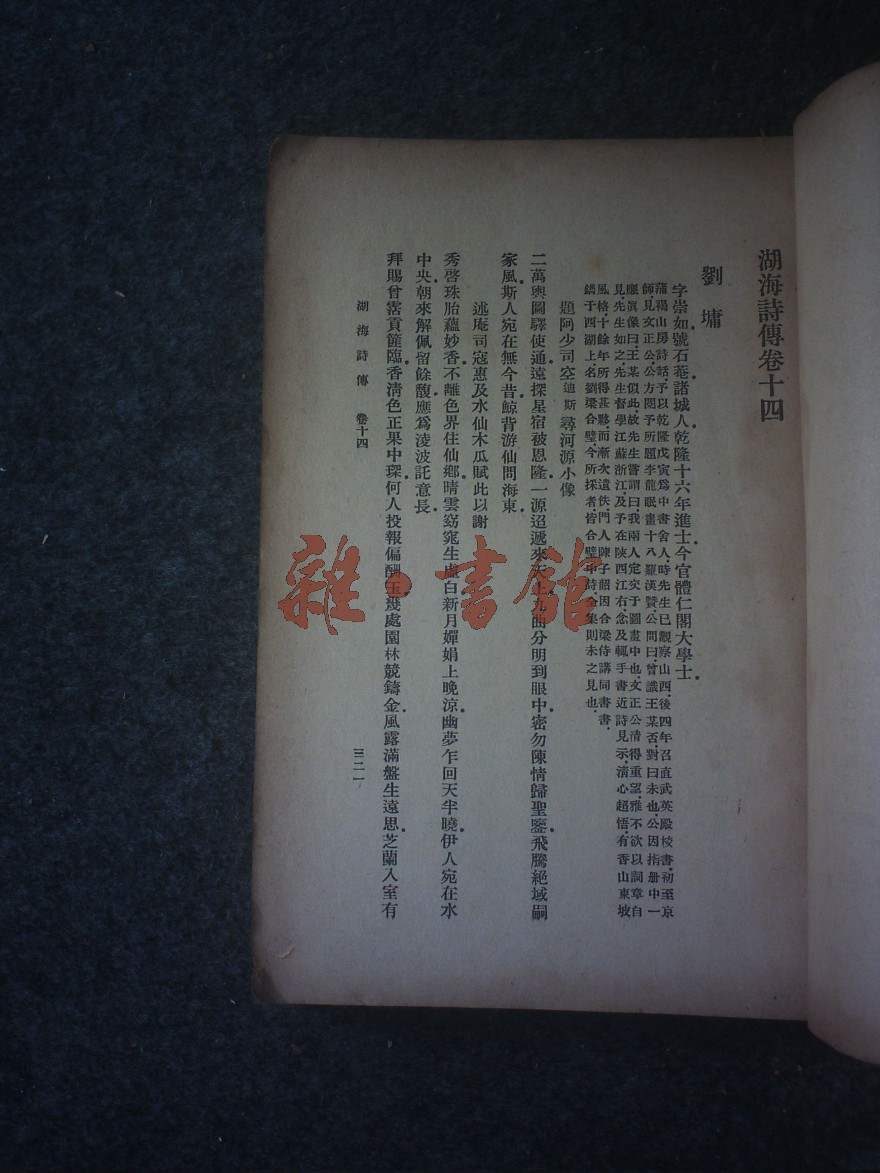 湖海詩傳卷十四
劉墉
字崇如號石菴諸城人乾隆十六年進士今官體仁閣大學士
蒲褐山房詩話予以乾隆戊寅爲中書舍人時先生已觀察山西後四年召直武英殿校書初至京
師見文正公公方閱予所題李龍眠畫十八羅漢贊公問曰曾識王某否對曰未也公因指册中一
應眞像曰王某似此故先生嘗謂曰我兩人定交于圖畫中也文正公清得重望雅不欲以詞章自
見先生如之先生督學江蘇浙江及予在陝西江右念及輒手書近詩見示清心超悟有香山東坡
風格十餘年所得甚夥而漸次遺佚門人陳子韶因合梁侍講同書書
鐫于西湖上名劉梁合璧今所採者皆合璧中詩全集則未之見也
題阿少司空迪斯尋河源小像
二萬輿圖驛使通遠探星宿被恩隆一源迢遞來天上九曲分明到眼中密勿陳情歸聖鑒飛騰絕域嗣
家風斯人宛在無今昔鯨背游仙問海東
述庵司寇惠及水仙木瓜賦此以謝
秀啓珠胎蘊妙香不離色界住仙鄉晴雲窈窕生虛白新月嬋娟上晚涼幽夢乍回天半曉伊人宛在水
中央朝來解佩留餘馥應爲淩波託意長
拜賜曾霑貢篚臨香清色正果中琛何人投報偏酬玉幾處園林競鑄金風露滿盤生遠思芝蘭入室有
湖海詩傳 卷十四
三二一
雜·書館